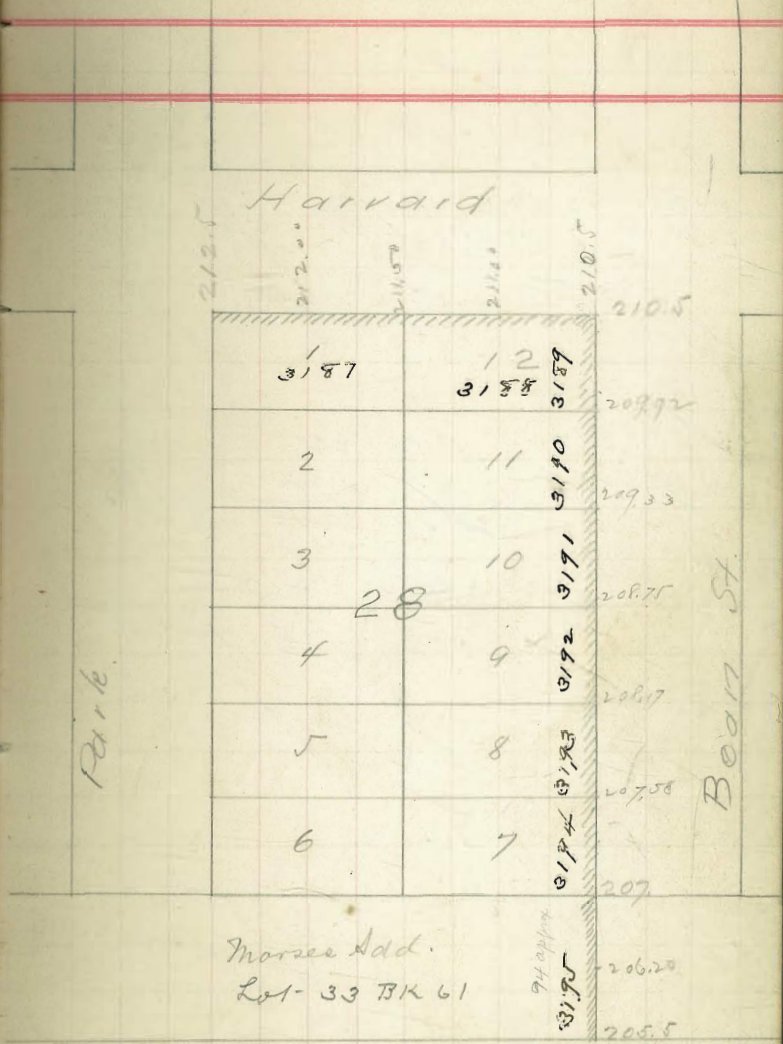 Harvard
212.5
212.00
211.50
211.00
210.5
210.5
1
3187
12
3188
3189
209.92
2
11
3190
209.33
3
10
3191
208.75
28
4
9
3192
208.17
5
8
3193
207.58
6
7
3194
207.
Park.
Bean St.
Morses Add.
Lot- 33 BK 61
94 approx
3195
206.20
205.5